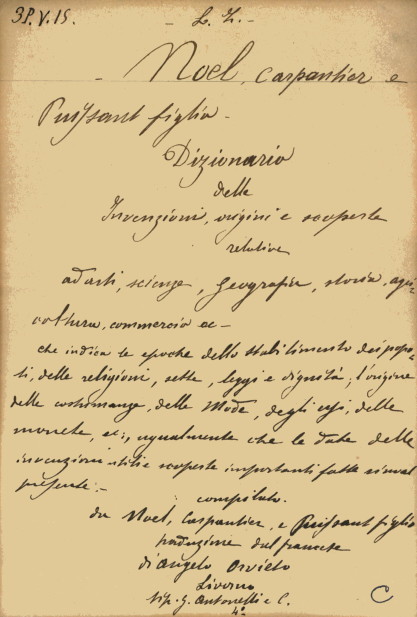 3P.V.15. - L. Z. -
- Noel, Carpantier e
Puissant figlio -
Dizionario
delle
Invenzioni, origini e scoperte
relative
ad arti, scienze, Geografia, storia, agri-
coltura, commercio ec -
che indica le epoche dello stabilimento dei popo-
li, delle religioni, sette, leggi e dignità; l'origine
delle costumanze, delle Mode, degli usi, delle
monete, ec:, egualmente che le date delle
invenzioni utili e scoperte importanti fatte sino al
presente:-
compilato.
da Noel, Carpantier, e Puissant figlio
traduzione dal francese
di Angelo Orvieto
Livorno
tip. G. Antonelli e C.
4º
C